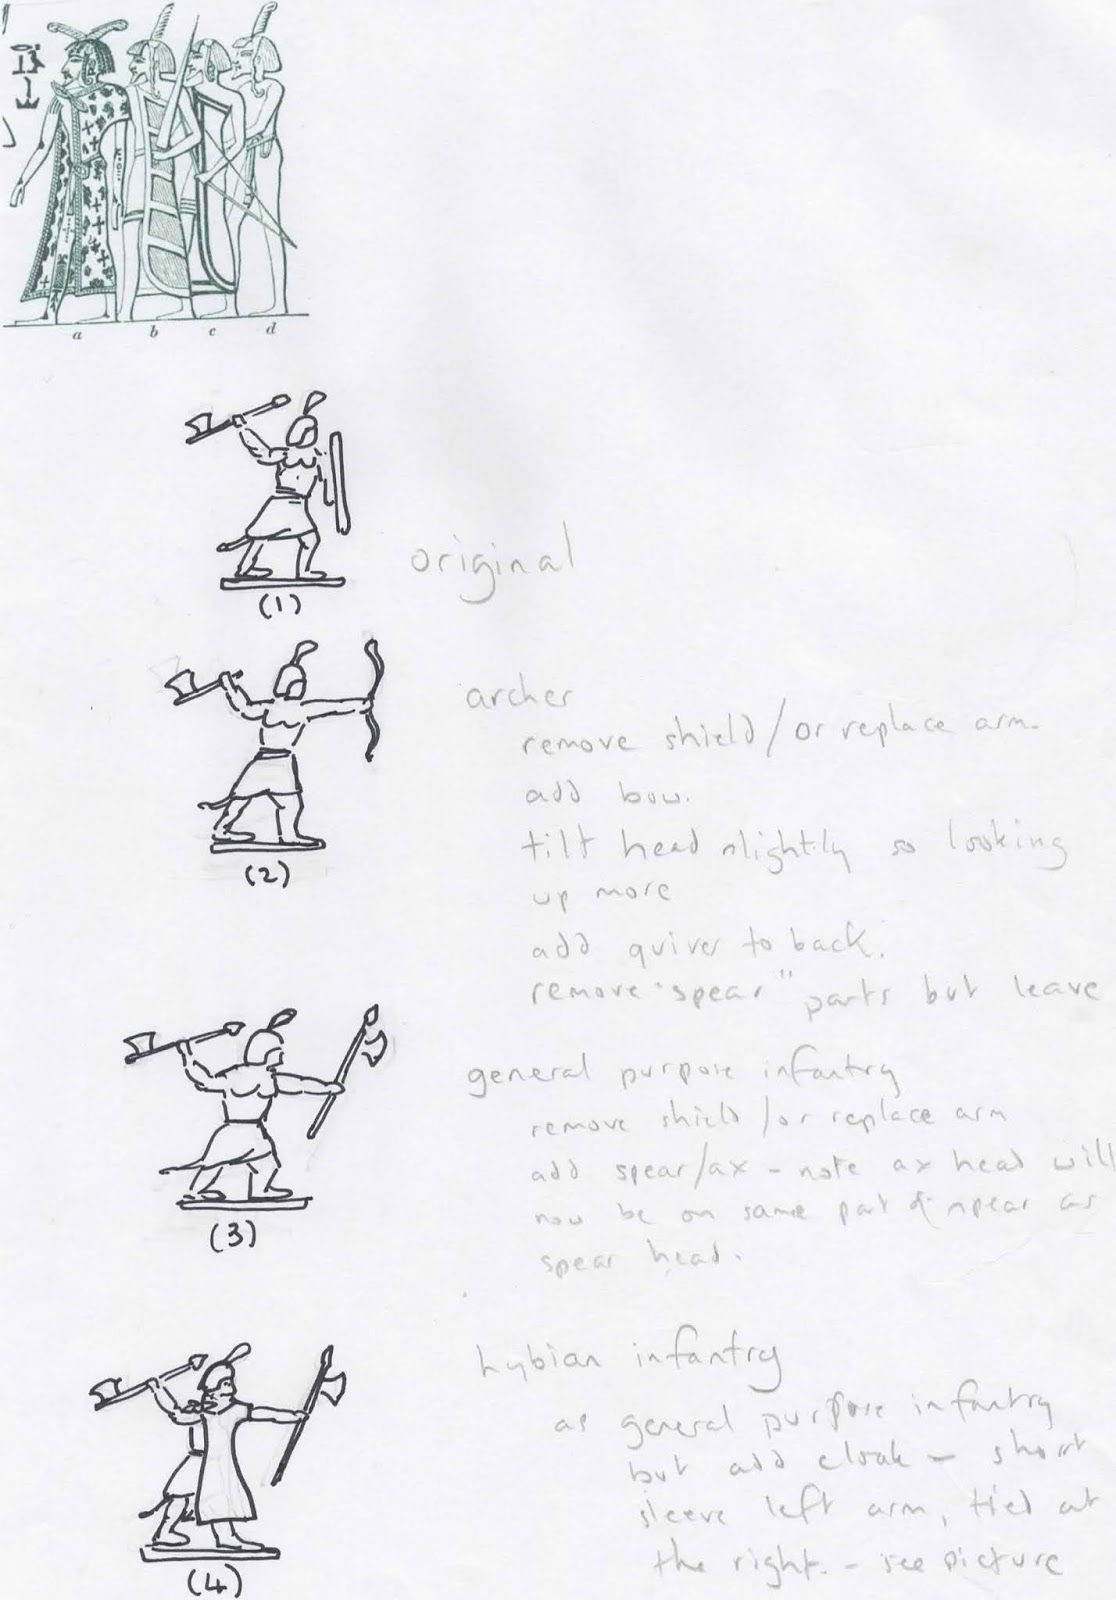 a b c d
(1)
original
(2)
archer
remove shield/or replace arm.
add bow.
tilt head slightly so looking
up more
add quiver to back.
remove "spear" parts but leave
(3)
general purpose infantry
remove shield/or replace arm
add spear/ax - note ax head will
now be on same part of spear as
spear head.
(4)
Lybian infantry
as general purpose infantry
but add cloak - short
sleeve left arm, tied at
the right. - see picture